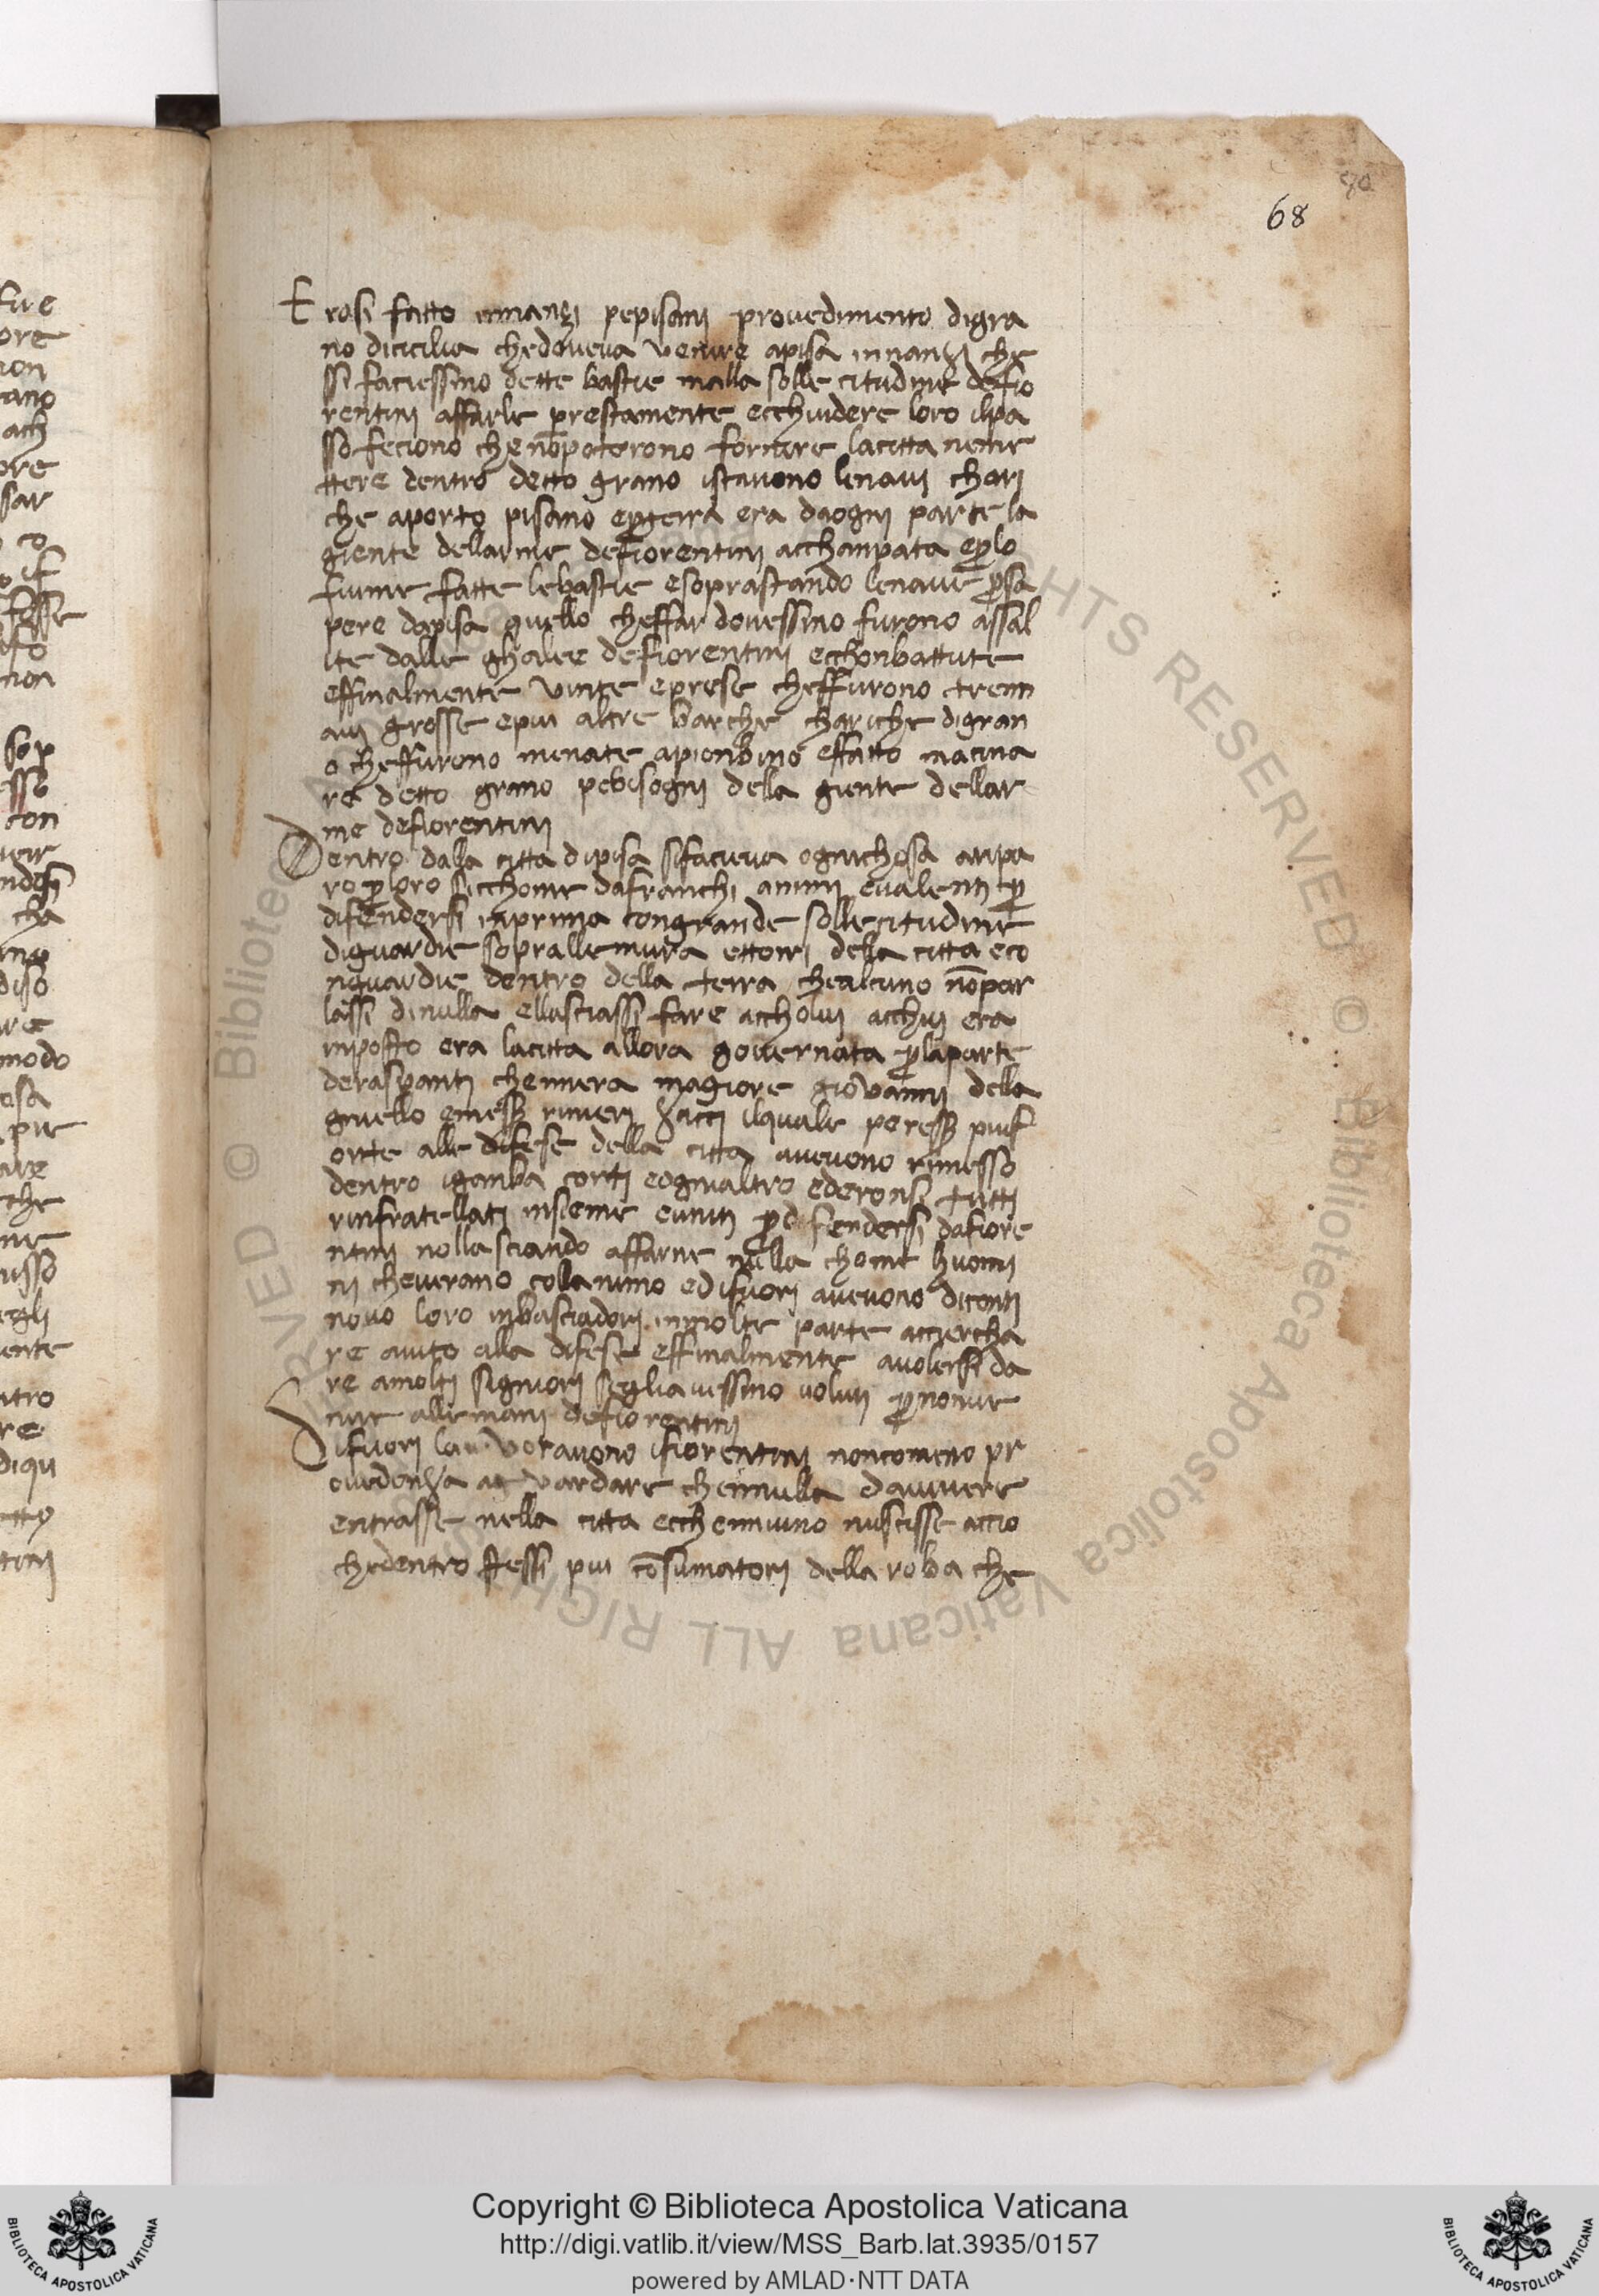 68
Erasi fatto innanzi pepisani provedimento digra
no dicicilia chedoveva venire apisa innanzi che
ssi faciessino dette bastie malla solle citudine defio
rentini affarle prestamente ecchiudere loro ilpa
sso feciono che nōpoterono fornire lacitta neme
ttere dentro detto grano istavono lenavi chari
che aporto pisano eꝑterra era daogni parte la
giente dellarme defiorentini acchanpata eꝑlo
fiume fatte lebastie esoprastando lenave ꝑsa
pere dapisa quello cheffar dovessino furono assal
ite dalle ghalee defiorentini ecchonbattute
effinalmente vinte eprese cheffurono tren
avi grosse epiu altre barche chariche digran
o cheffurono menate apionbino effatto macina
re detto grano pebisogni della giente dellar
me defiorentini
Dentro dalla citta dipisa sifacieva ognichosa aripa
ro ꝑloro sicchome dafranchi animi evalenti ꝑ
difendersi inprima congrande sollecitudine
diguardie sopralle mura ettorri della citta eco
nguardie dentro della terra chealcuno nōpar
lassi dinulla ellasciassi fare accholui acchui era
inposto era lacitta allora governata ꝑlaparte
deraspanti chennera magiore giovanni della
gnello emess rinieri zacci ilquale peress piuf
orte alle difese della citta avevono rimesso
dentro iganba corti eognialtro ederonsi tutti
rinfratellati insieme euniti ꝑdifendersi dafiore
ntini nolla sciando affarne nulla chome huomi
ni cheverano collanimo edifuori avevono diconti
novo loro inbasciadori inmolte parte acciercha
re aiuto alla difese effinalmente avolersi da
re amolti signiori seglia vessino voluti ꝑnonve
nire allemani defiorentini
Difuori lavoravono ifiorentini noncomeno pr
ovedenza aguardare chennulla davivere
entrasse nella citta ecchenniuno nuscisse accio
chedentro stessi piu cōsumatori della roba che
Copyright © Biblioteca Apostolica Vaticana
http://digi.vatlib.it/view/MSS_Barb.lat.3935/0157
powered by AMLAD·NTT DATA